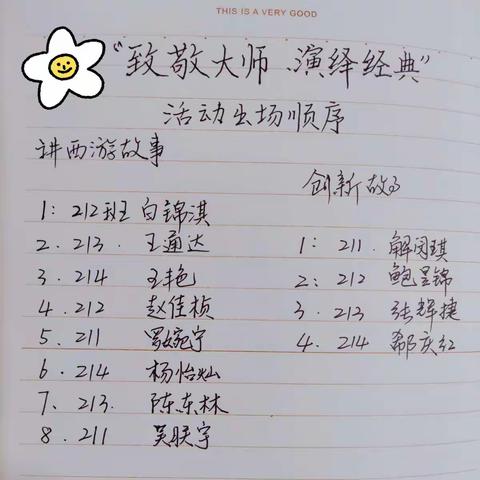 THIS IS A VERY GOOD
“致敬大师、演绎经典”
活动出场顺序
讲西游故事
1: 212班 白锦淇
2. 213. 王通达
3. 214 王艳
4. 212 赵佳桢
5. 211 罗婉宁
6. 214 杨怡灿
7、213. 陈东林
8. 211 吴联宇
创新故事
1: 211. 解闵琪
2: 212 鲍呈锦
3. 213 张辉捷
4. 214 郗庆红